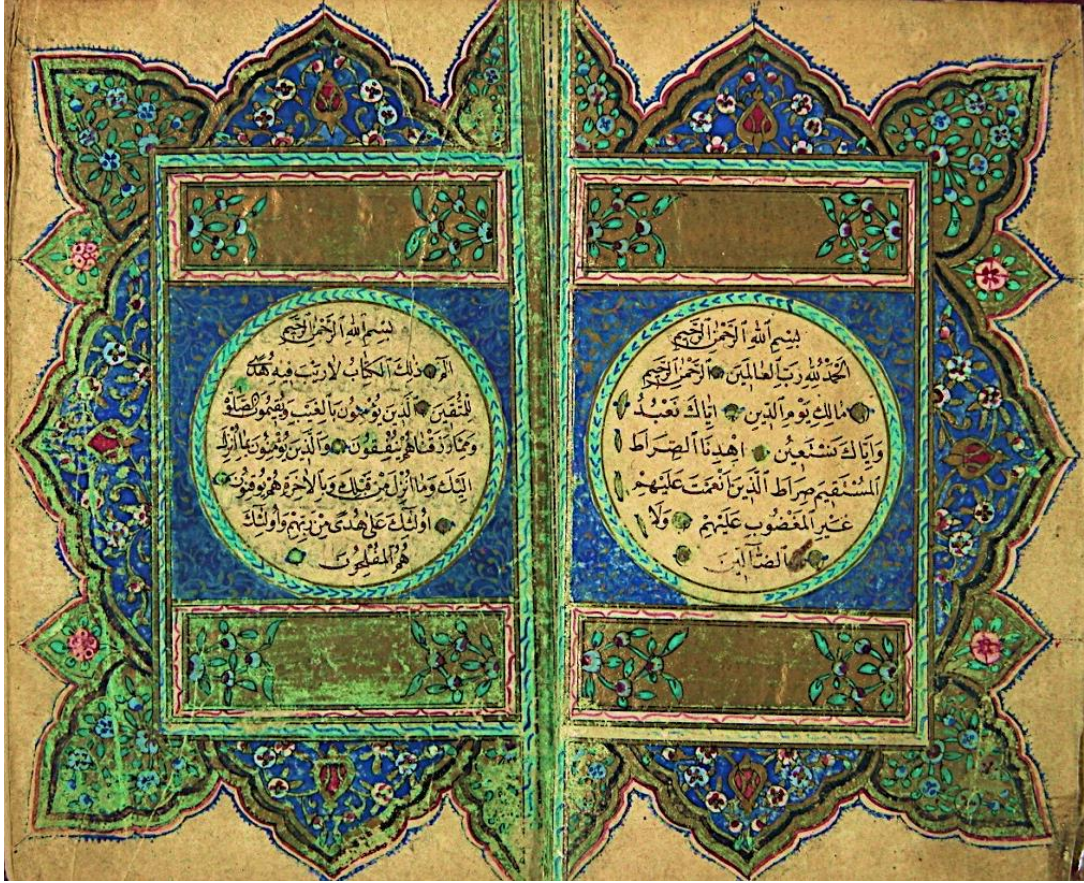 بِسْمِ اللهِ الرَّحْمٰنِ الرَّحِيمِ
اَلْحَمْدُ لِلهِ رَبِّ الْعَالَمِينَ الرَّحْمٰنِ الرَّحِيمِ
مَالِكِ يَوْمِ الدِّينِ اِيَّاكَ نَعْبُدُ
وَاِيَّاكَ نَسْتَعِينُ اِهْدِنَا الصِّرَاطَ
الْمُسْتَقِيمَ صِرَاطَ الَّذِينَ اَنْعَمْتَ عَلَيْهِمْ
غَيْرِ الْمَغْضُوبِ عَلَيْهِمْ وَلَا
الضَّالِّينَ
بِسْمِ اللهِ الرَّحْمٰنِ الرَّحِيمِ
الٓمٓ ذٰلِكَ الْكِتَابُ لَا رَيْبَ فِيهِ هُدًى
لِلْمُتَّقِينَ الَّذِينَ يُؤْمِنُونَ بِالْغَيْبِ وَيُقِيمُونَ الصَّلٰوةَ
وَمِمَّا رَزَقْنَاهُمْ يُنْفِقُونَ وَالَّذِينَ يُؤْمِنُونَ بِمَا اُنْزِلَ
اِلَيْكَ وَمَا اُنْزِلَ مِنْ قَبْلِكَ وَبِالْاٰخِرَةِ هُمْ يُوقِنُونَ
اُولٰئِكَ عَلٰى هُدًى مِنْ رَبِّهِمْ وَاُولٰئِكَ
هُمُ الْمُفْلِحُونَ